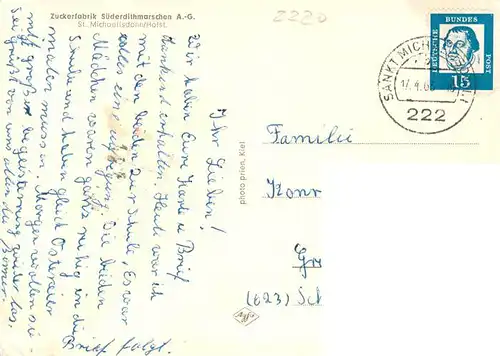 Zuckerfabrik Süderdithmarschen A.-G.
St. Michaelisdonn/Holst.
2220
DEUTSCHE BUNDES POST
15
SANKT MICH
17.4.6
222
Ihr Lieben!
Wir haben Eure Karte u Brief
dankend erhalten. Heute war ich
mit den beiden zur Schule, Es war
alles eine aufgeregt. Die beiden
Mädchen waren ganz ruhig in die
Schule und haben gleich Ostereier
malen müssen. Morgen wollen sie
mit großer Begeisterung wieder los,
Seid gegrüßt von uns allen
Brief folgt.
photo prien, Kiel
Familie
Konr
Gr
(623) Sch
Agfa